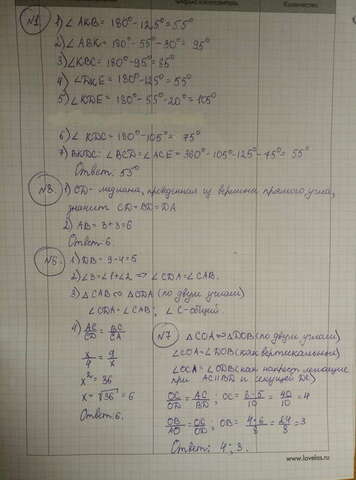 №1
1) ∠ AKB = 180° - 125° = 55°
2) ∠ ABK = 180° - 55° - 30° = 95°
3) ∠ KBC = 180° - 95° = 85°
4) ∠ DKE = 180° - 125° = 55°
5) ∠ KDE = 180° - 55° - 20° = 105°
6) ∠ KDC = 180° - 105° = 75°
7) BKDC: ∠ BCD = ∠ ACE = 360° - 105° - 125° - 75° = 55°
Ответ: 55°
№3
1) CD - медиана, проведенная из вершины прямого угла,
значит CD = BD = DA
2) AB = 3 + 3 = 6
Ответ: 6.
№5
1) DB = 9 - 4 = 5
2) ∠3 = ∠1 + ∠2 ⇒ ∠CDA = ∠CAB.
3) △ CAB ∾ △CDA (по двум углам)
∠CDA = ∠CAB, ∠ C - общий
4) AC/CD = BC/CA
x/4 = 9/x
x² = 36
x = √36 = 6
Ответ: 6.
№7
△ COA ∾ △DOB (по двум углам)
∠COA = ∠DOB (как вертикальные)
∠OCA = ∠ODB как накрест лежащие
при AC || BD и секущей DC)
OC/OD = AC/BD ; OC = 8·5/10 = 40/10 = 4
OB/AO = OD/OC ; OB = 4·6/8 = 24/8 = 3
Ответ: 4; 3.
www.lovelas.ru